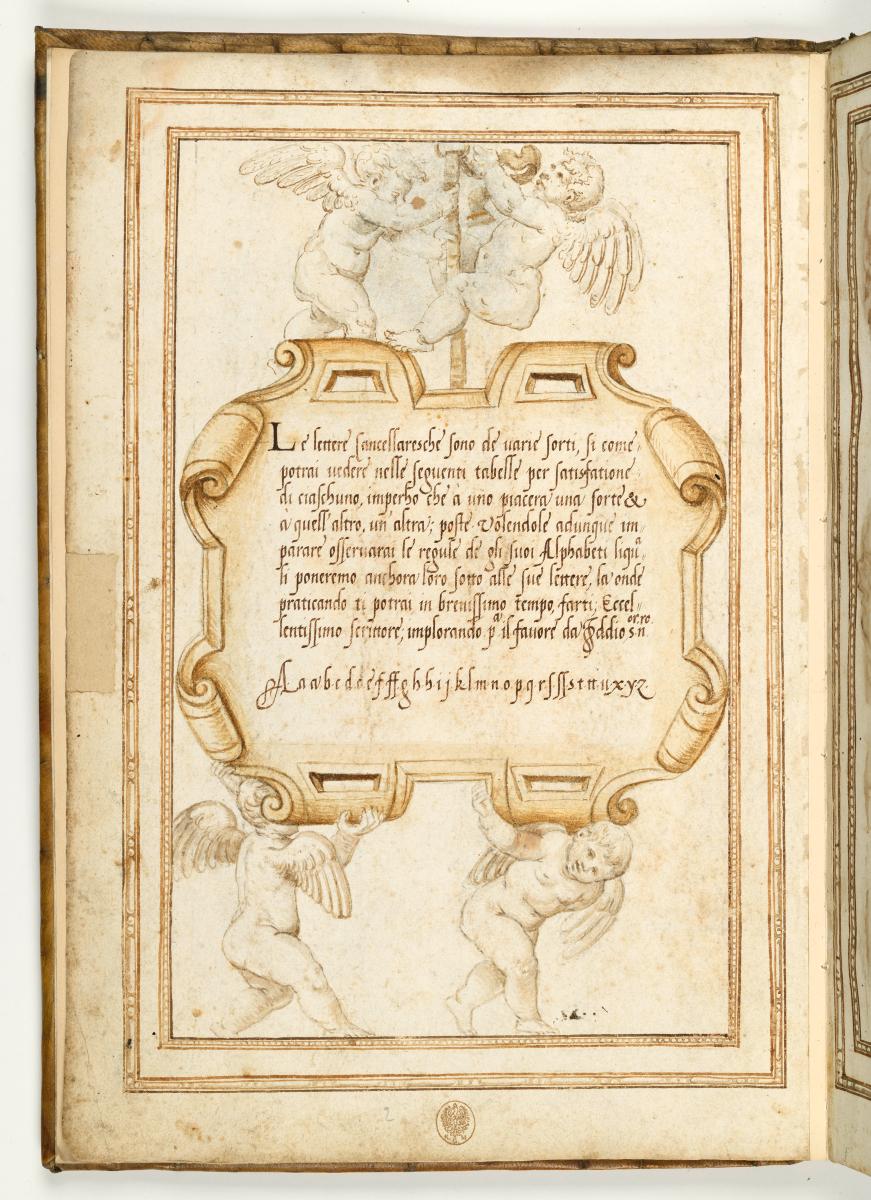 Le lettere Cancellaresche sono de varie sorti, si come
potrai vedere nelle seguenti tabelle per satisfatione
di ciaschuno, imperho che à uno piacera una sorte &
à quell'altro, un'altra; poste Volendole adunque im-
parare osseruarai le regule de gli suoi Alphabeti liqua-
li poneremo anchora loro sotto alle sue lettere, la onde
praticando ti potrai in breuissimo tempo, farti; Eccel-
lentissimo scrittore; implorando pa il fauore da Iddio snor.ro
A a a b c d d e f ff g h h i j k l m n o p q r s ſſ s t tt u x y z
2